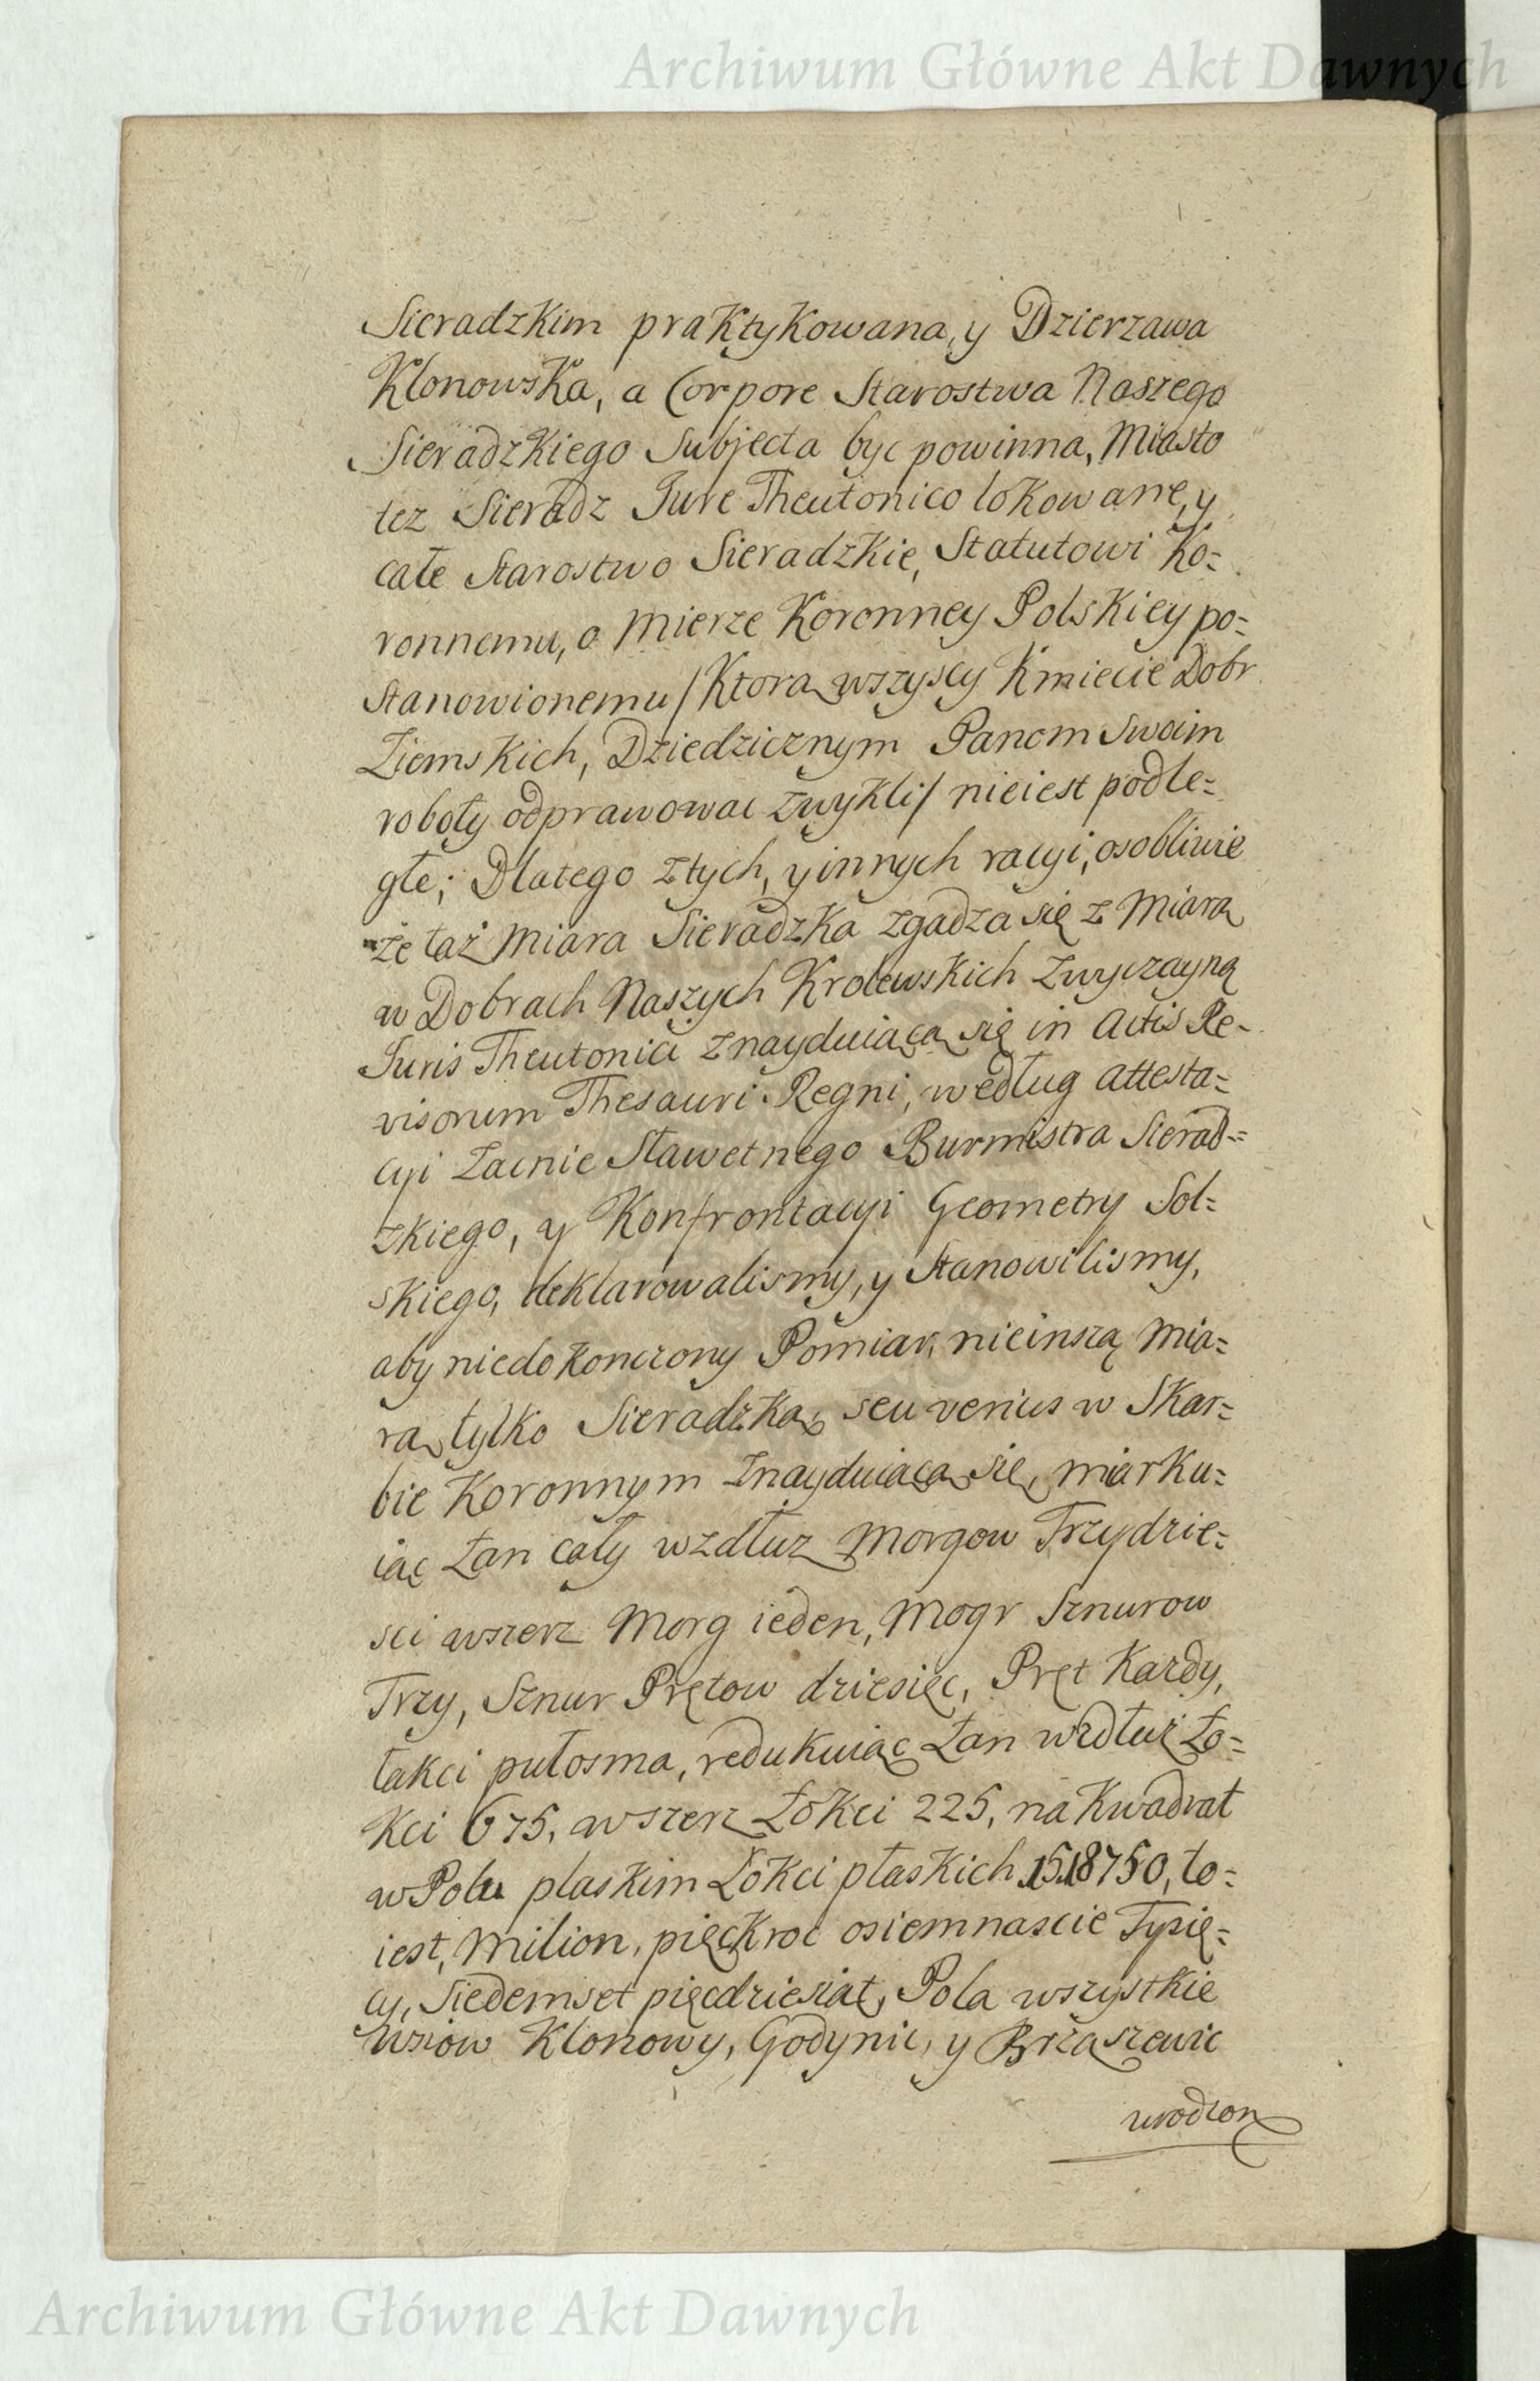 Archiwum Główne Akt Dawnych
Sieradzkim praktykowana, y Dzierzawa
Klonowska, a Corpore Starostwa Naszego
Sieradzkiego Subjecta byc powinna, Miasto
tez Sieradz Jure Theutonico lokowane, y
całe Starostwo Sieradzkie, Statutowi Ko=
ronnemu, o Mierze Koronney Polskiey po=
stanowionemu / Ktorą wszyscy Kmiecie Dobr
Ziemskich, Dziedzicznym Panom Swoim
roboty odprawowac zwykli / nieiest podle=
głe; Dlatego z tych, y innych racyi, osobliwie
że taż Miara Sieradzka zgadza się z Miarą
w Dobrach Naszych Krolewskich Zwyczayną
Juris Theutonici znayduiącą się in Actis Re=
visorum Thesauri Regni, według Attesta=
cyi Zacnie Sławetnego Burmistra Sierad=
zkiego, y Konfrontacyi Geometry Sol=
skiego, deklarowalismy, y Stanowilismy,
aby niedokonczony Pomiar, nieinszą Mia=
rą, tylko Sieradzką, seu verius w Skar=
bie Koronnym Znayduiącą się, miarku=
iąc Łan cały wzdłuz Morgow Trzydzie=
sci wszerz Morg ieden, Mogr Sznurow
Trzy, Sznur Prętow dziesięc, Pręt Kazdy,
łakci pułosma, redukuiąc Łan wzdłuż Ło=
kci 675, wszerz Łokci 225, na Kwadrat
w Polu plaskim Łokci płaskich 1518750, to=
iest, Milion, pięckroc osiemnascie Tysię=
cy, Siedemset pięcdziesiąt, Pola wszystkie
Wsiow Klonowy, Godynic, y Brząszewic
urodzon
Archiwum Główne Akt Dawnych